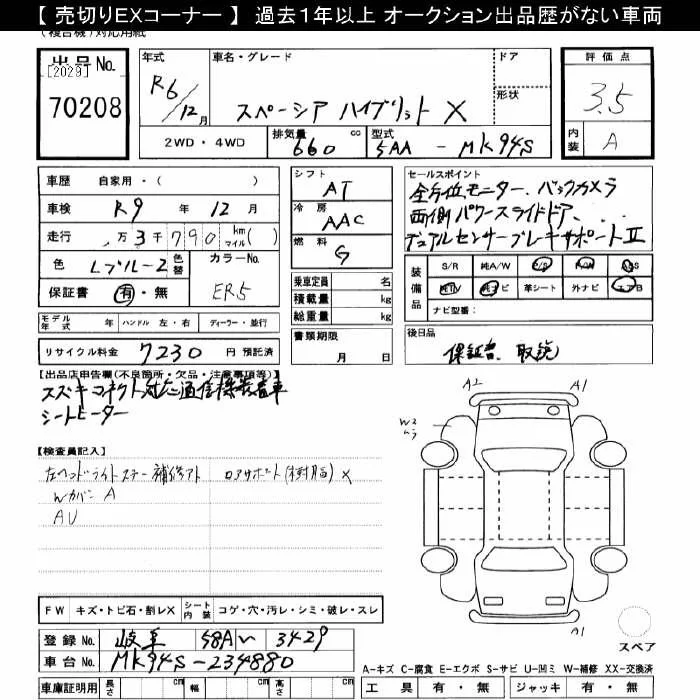 【 売切りEXコーナー 】 過去1年以上 オークション出品歴がない車両
(複合機)対応用紙
出品No. 年式 車名・グレード ドア 評価点
[2029]
70208 R6/12月 スペーシア ハイブリット X 形状 3.5
2WD・4WD 排気量 660 cc 型式 5AA - MK94S 内装 A
車歴 自家用・( ) シフト AT セールスポイント
車検 R9 年 12 月 冷房 AAC 全方位モニター、バックカメラ
走行 万 3 千 790 km マイル( ) 燃料 G 両側パワースライドドア、
色 Lブルー2 色替 カラーNo. デュアルセンサーブレーキサポートⅡ
保証書 有・無 ER5 乗車定員 名 装備品 S/R 純A/W P/S P/W ABS
積載量 kg 純TV 純ナビ 革シート 外ナビ エアB
総重量 kg ナビ型番:
モデル年式 年 ハンドル 左・右 ディーラー・並行 書類期限 後日品
リサイクル料金 7230 円 預託済 月 日 保証書、取説
【出品店申告欄(不良箇所・欠品・注意事項等)】
スズキコネクト対応通信機装着車
シートヒーター
A2 A1
W2
ムラ
【検査員記入】
左ヘッドライトステー補修アト ロアサポート(樹脂) X
Wカバー A
AU
FW キズ・トビ石・割レX シート内装 コゲ・穴・汚レ・シミ・破レ・スレ
A1
スペア
登録No. 岐阜 581 い 3429
車台No. MK94S-234880
A-キズ C-腐食 E-エクボ S-サビ U-凹ミ W-補修 XX-交換済
車庫証明用 長さ cm 幅 cm 高さ cm 工具 有・無 ジャッキ 有・無